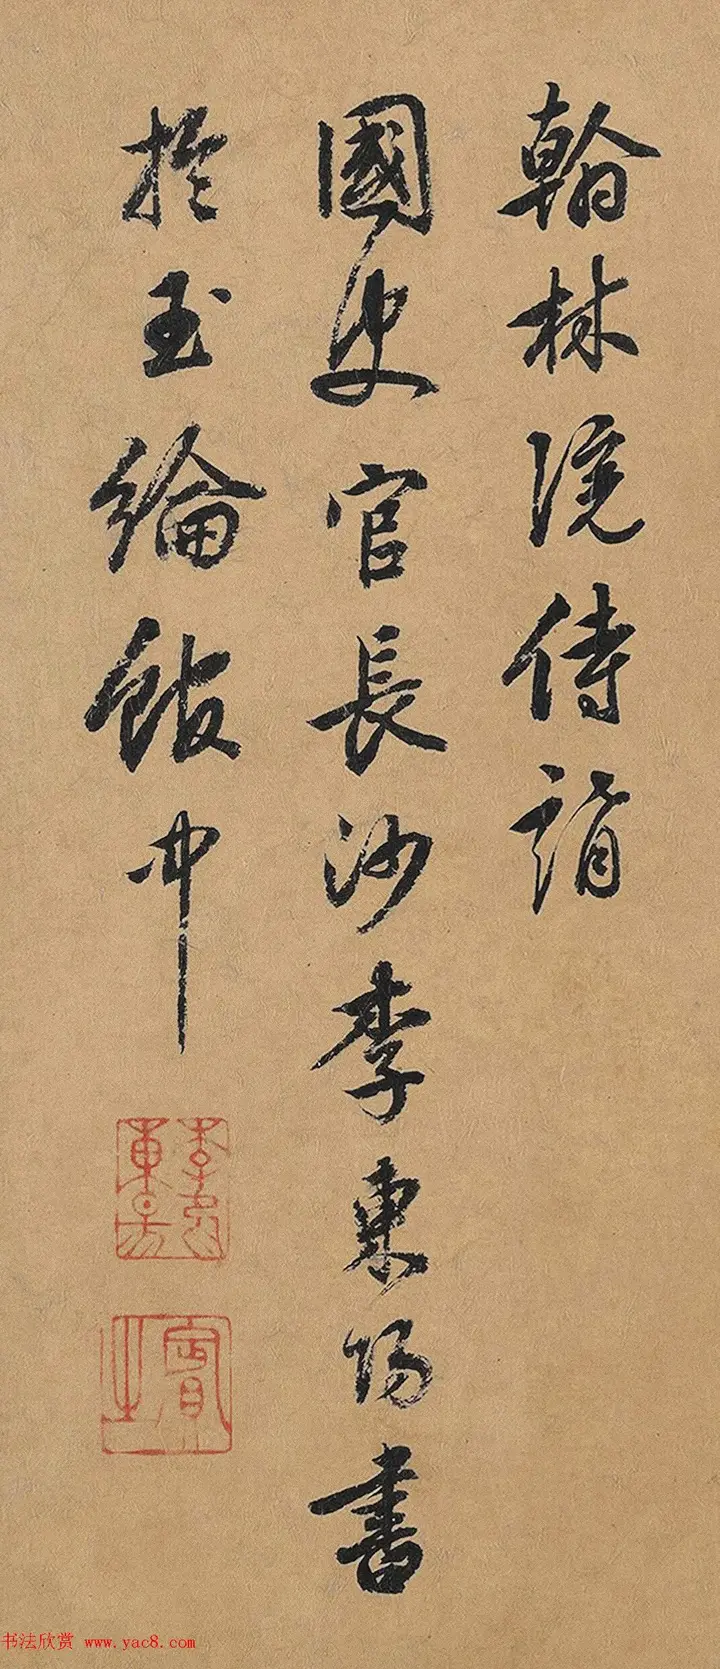 翰林院侍講
國史官長沙李東陽書
於玉綸館中
賓之
书法欣赏 www.yac8.com